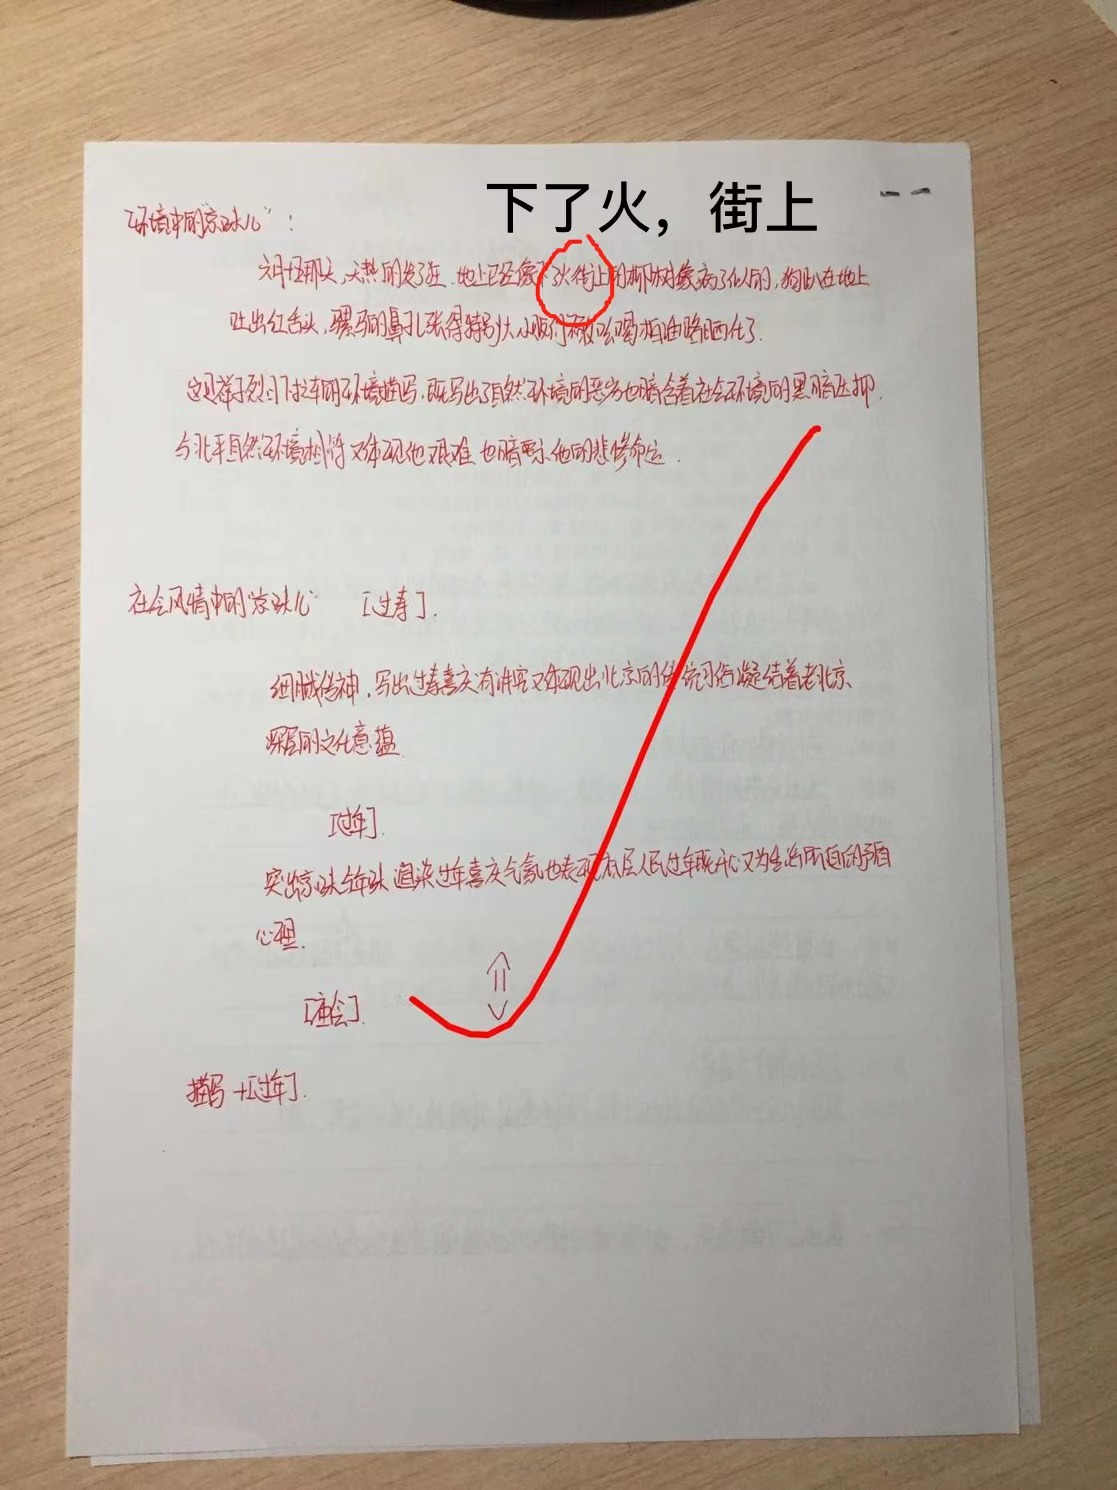 下了火，街上
环境中的“京味儿”：
六月十五那天，天热的发了狂．地上已经像下了火街上的柳树像病了似的，狗趴在地上
吐出红舌头，骡马的鼻孔张得特别大，小贩们不敢吆喝柏油路晒化了．
这是祥子烈日下拉车的环境描写，既写出了自然环境的恶劣也暗含着社会环境的黑暗压抑．
与北平自然环境相符又体现他艰难 也暗示他的悲惨命运．
社会风情中的“京味儿” [过寿]．
细腻传神，写出过寿喜庆有讲究又体现出北京的传统习俗凝结着老北京
深层的文化意蕴
[过年]．
突出京味年味 渲染过年喜庆气氛也表现底层人民过年既开心又为生活所迫的矛盾
心理．
[庙会]．
描写 +[过年]．